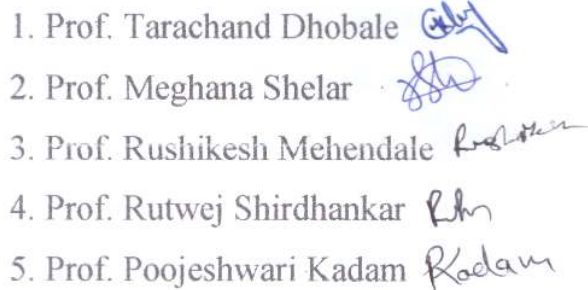 1. Prof. Tarachand Dhobale
2. Prof. Meghana Shelar
3. Prof. Rushikesh Mehendale
4. Prof. Rutwej Shirdhankar
5. Prof. Poojeshwari Kadam PKadam